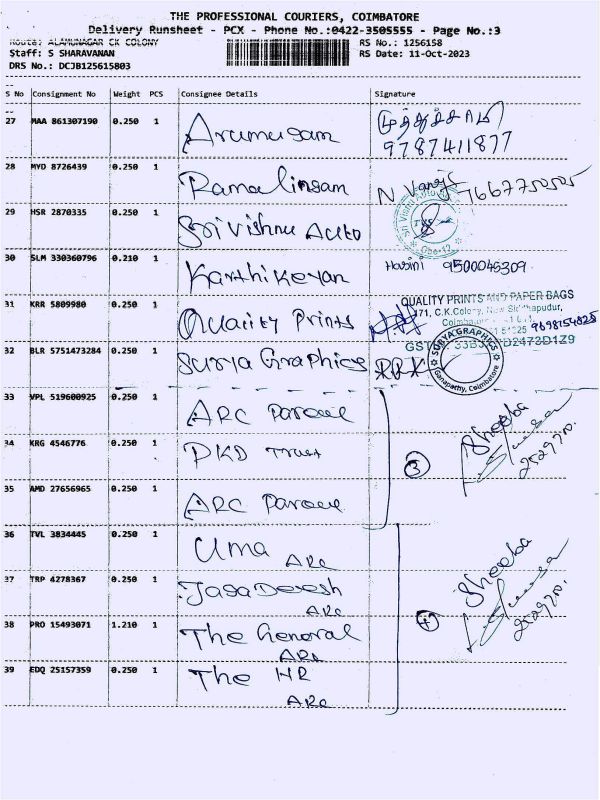 THE PROFESSIONAL COURIERS, COIMBATORE
Delivery Runsheet - PCX - Phone No.:0422-3505555 - Page No.:3
Route: ALAMUNAGAR CK COLONY
RS No.: 1256158
Staff: S SHARAVANAN
RS Date: 11-Oct-2023
DRS No.: DCJB125615803
S No Consignment No Weight PCS Consignee Details Signature
27 MAA 861307190 0.250 1 Arumugam
9787411877
28 MYD 8726439 0.250 1 Ramalingam N
29 HSR 2870335 0.250 1 Sri Vishnu Auto
30 SLM 330360796 0.210 1 Karthikeyan Harini 9500045309
31 KRR 5809980 0.250 1 Quality Prints
QUALITY PRINTS AND PAPER BAGS
171, C.K.Colony, New Siddhapudur,
32 BLR 5751473284 0.250 1 Surya Graphics
SURYA GRAPHICS
Ganapathy, Coimbatore
33 VPL 519600925 0.250 1 ARC Parcel
34 KRG 4546776 0.250 1 PKD Trust
3 Sheeba
35 AMD 27656965 0.250 1 ARC Parcel
36 TVL 3834445 0.250 1 Uma ARC
37 TRP 4278367 0.250 1 Jagadeesh ARC
4 Sheeba
38 PRO 15493071 1.210 1 The General ARC
39 EDQ 25157359 0.250 1 The HR ARC